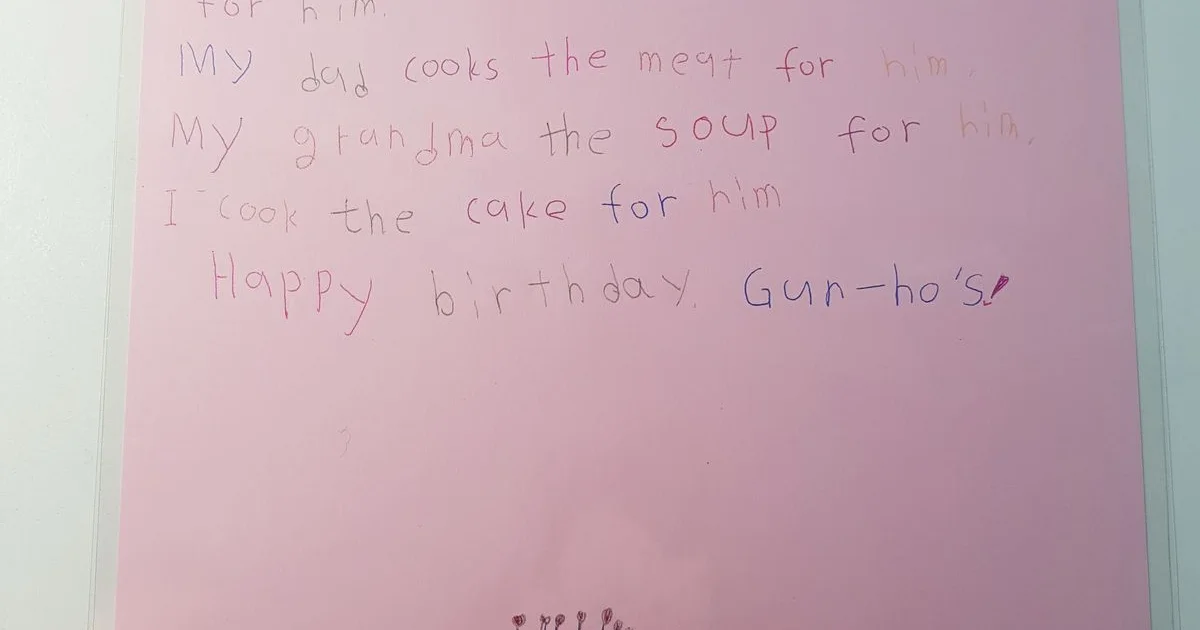 for him.
My dad cooks the meat for him.
My grandma the soup for him.
I cook the cake for him
Happy birthday. Gun-ho's!